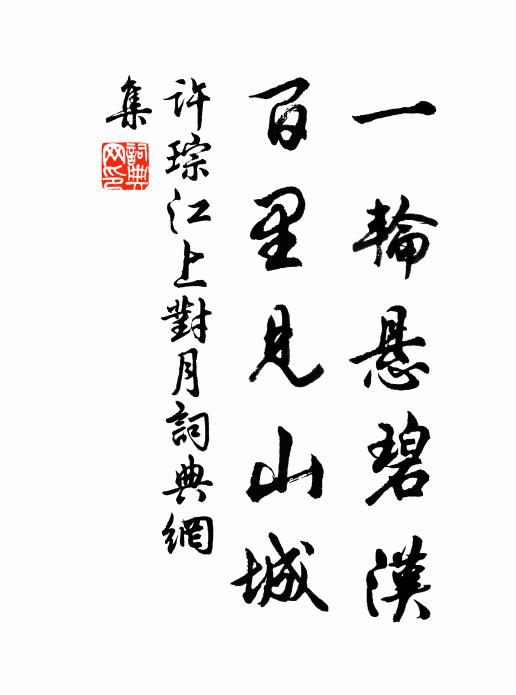 一輪悬碧漢
百里見山城
許琮江上對月詞典網
集
詞典網印